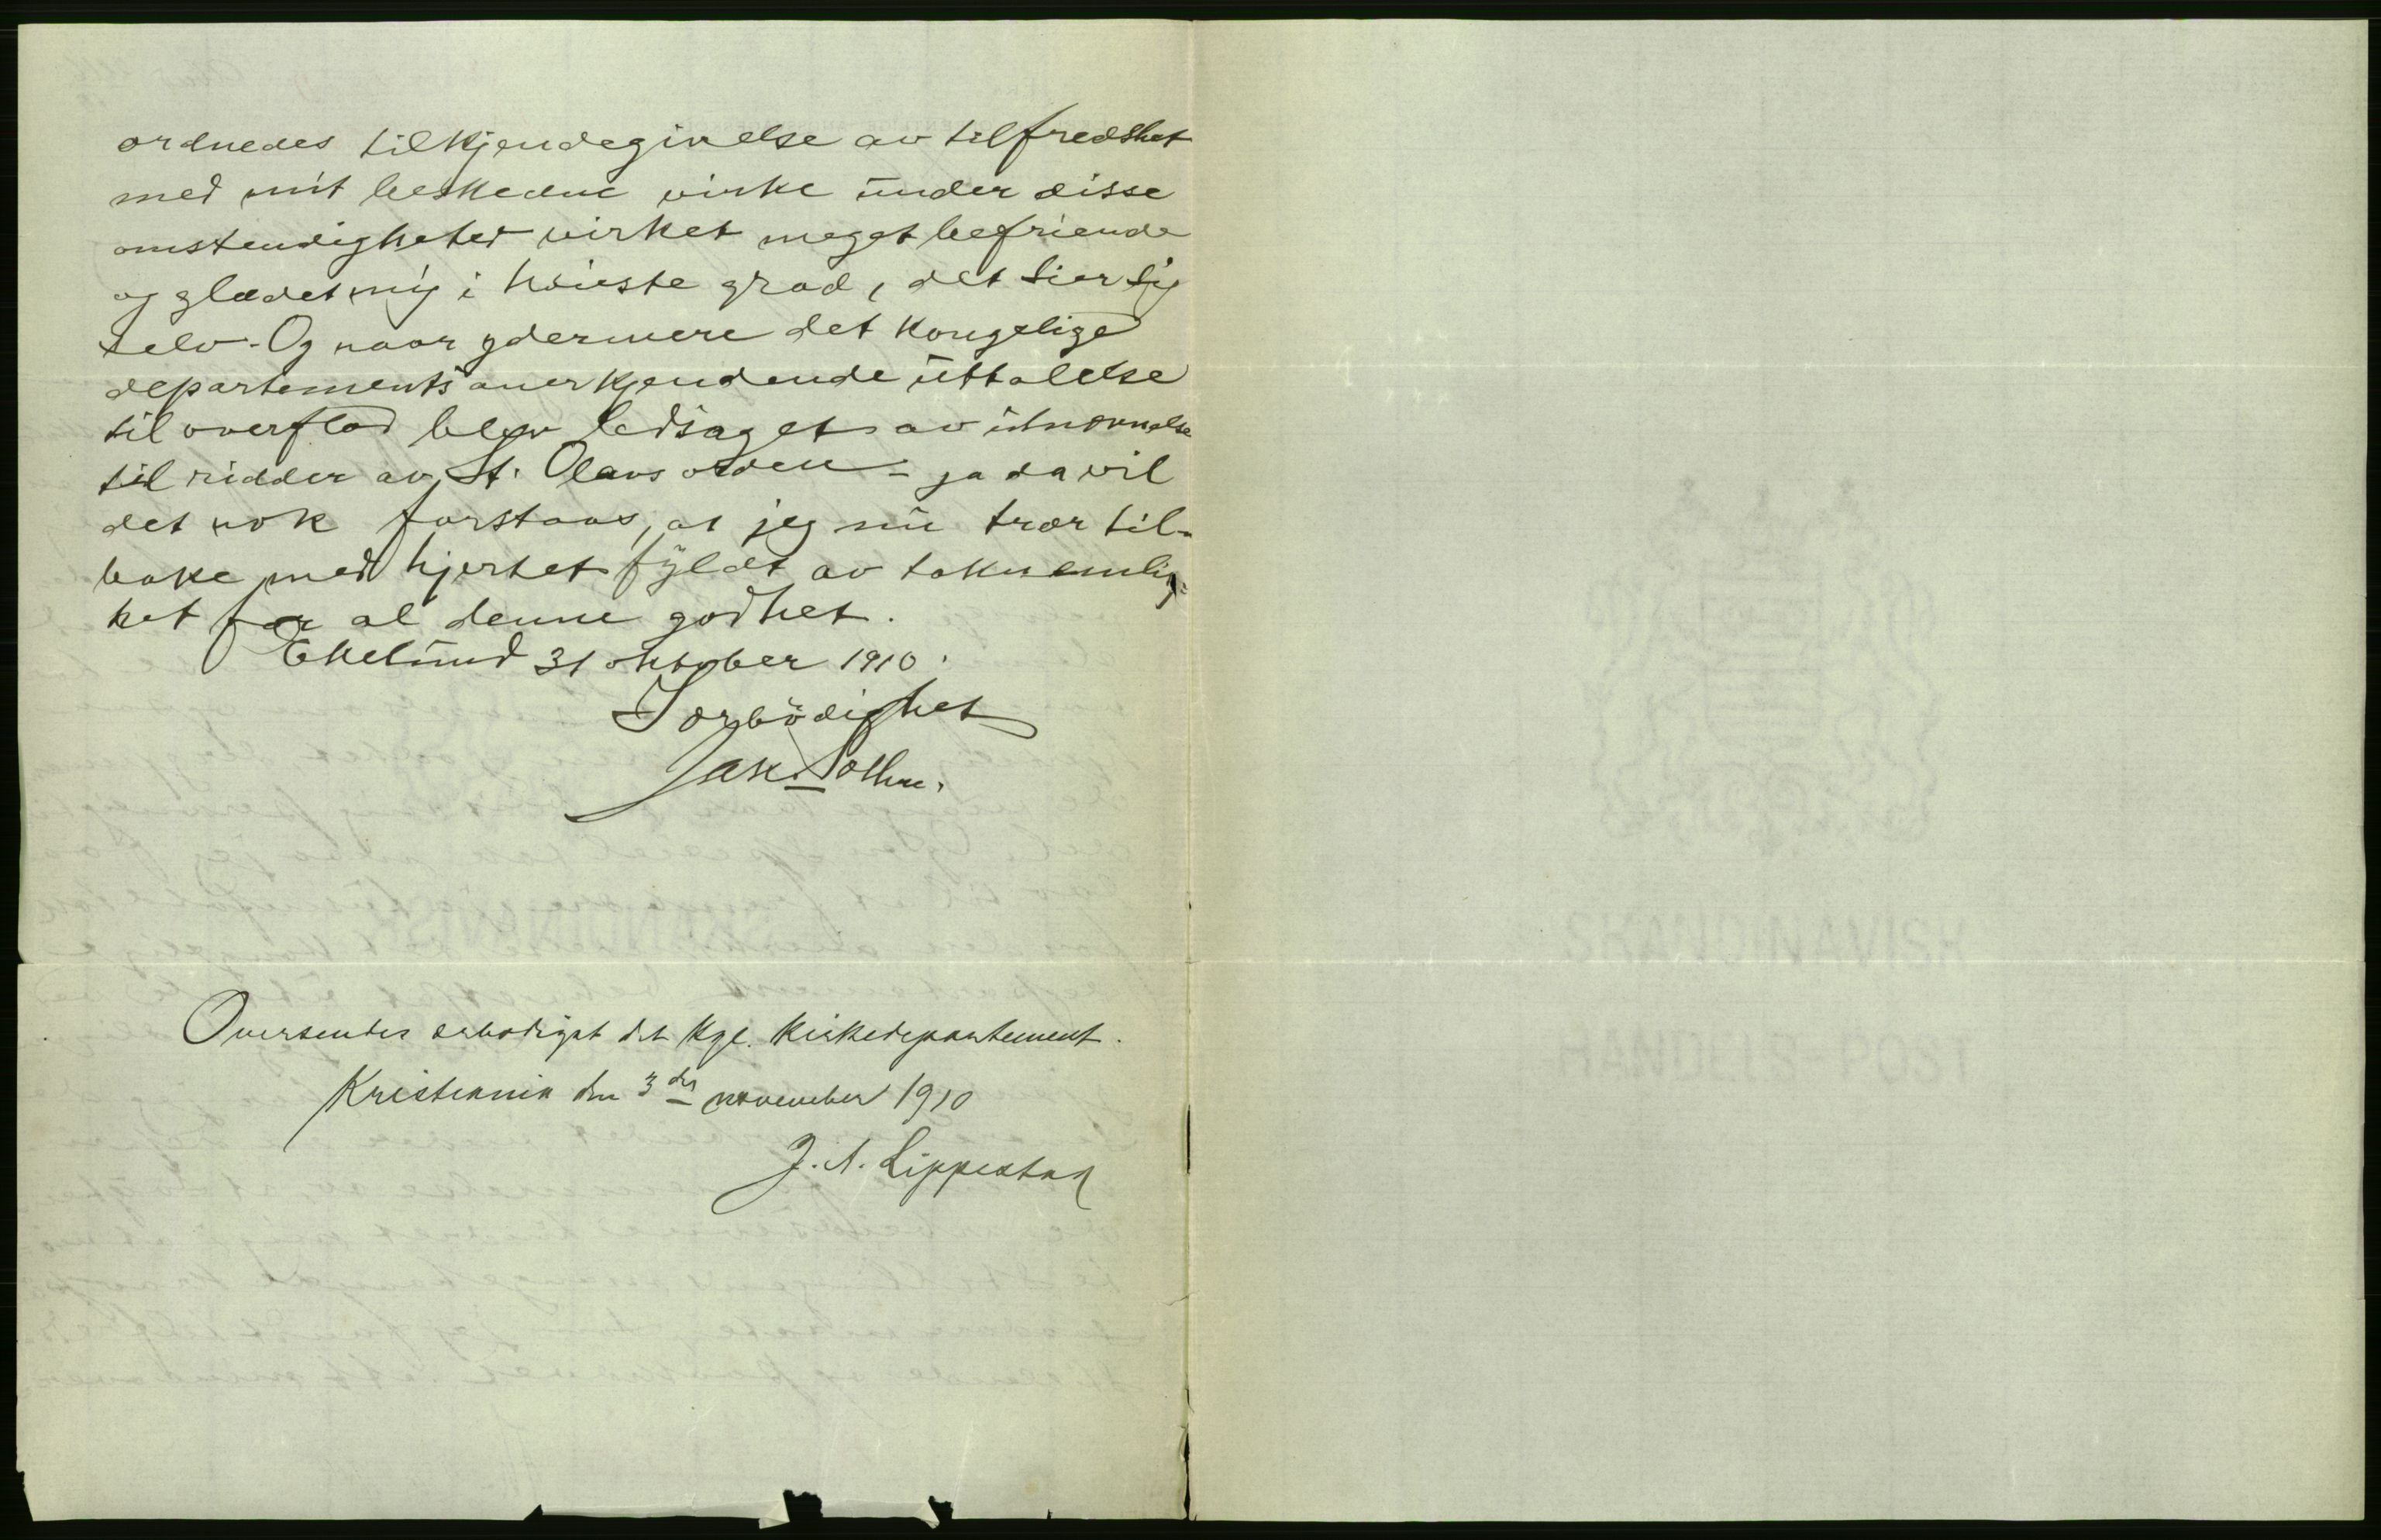 ordnedes tilkjendegivelse av tilfredshet
med mit beskedne virke under disse
omstendigheter virket meget befriende
og glædet mig i høieste grad, det sier sig
selv. Og naar ydermere det kongelige
departements anerkjendende uttalelse
til overflod blev ledsaget av utnævnelse
til ridder av St. Olavs orden – ja da vil
det nok forstaaes, at jeg nu træer til-
bake med hjertet fyldt av taknemlig-
het for al denne godhet.
Ekelund 31 oktober 1910.
I ærbödighet
Jak.
Oversendes ærbødigst det Kgl. Kirkedepartement.
Kristiania den 3de november 1910
J. A. Lippestad
SKANDINAVISK
HANDELS-POST